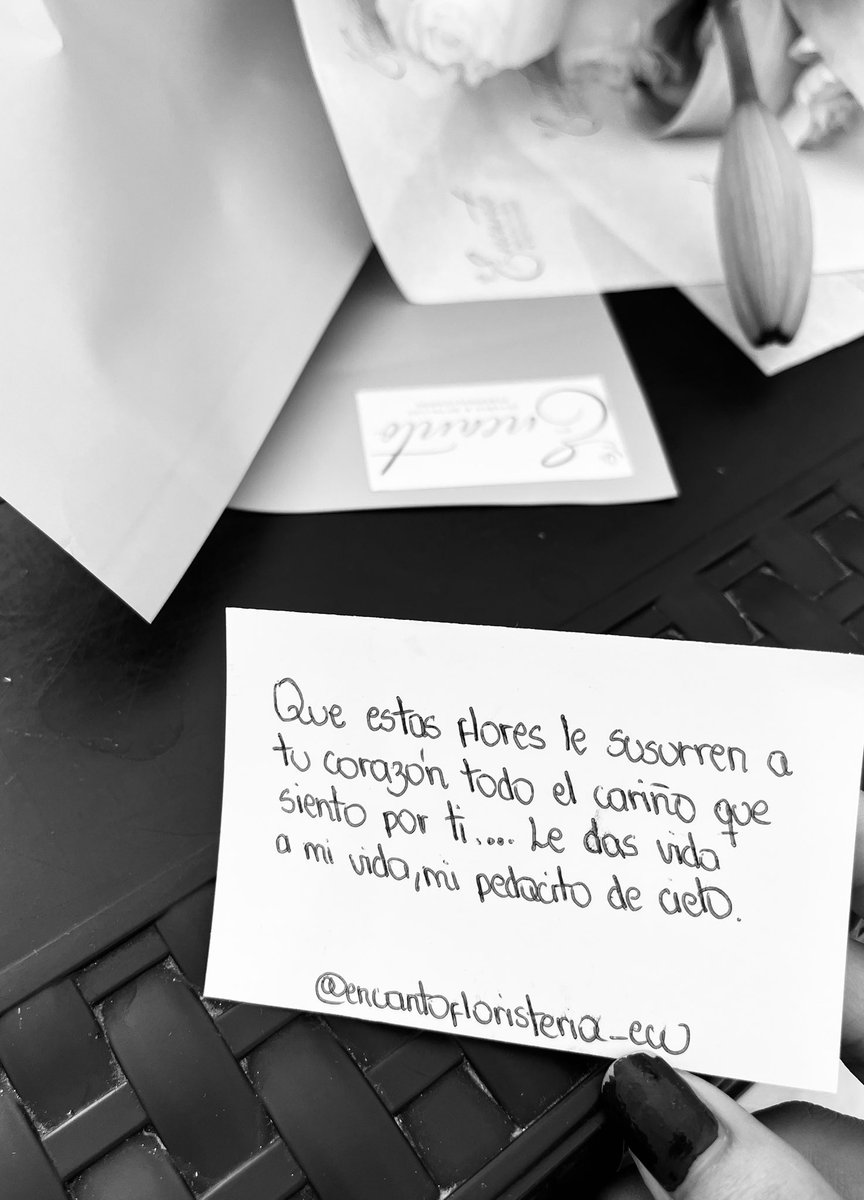 Encanto
Que estas flores le susurren a
tu corazón todo el cariño que
siento por ti.... Le das vida
a mi vida, mi pedacito de cielo.
@encantofloristeria_ecu